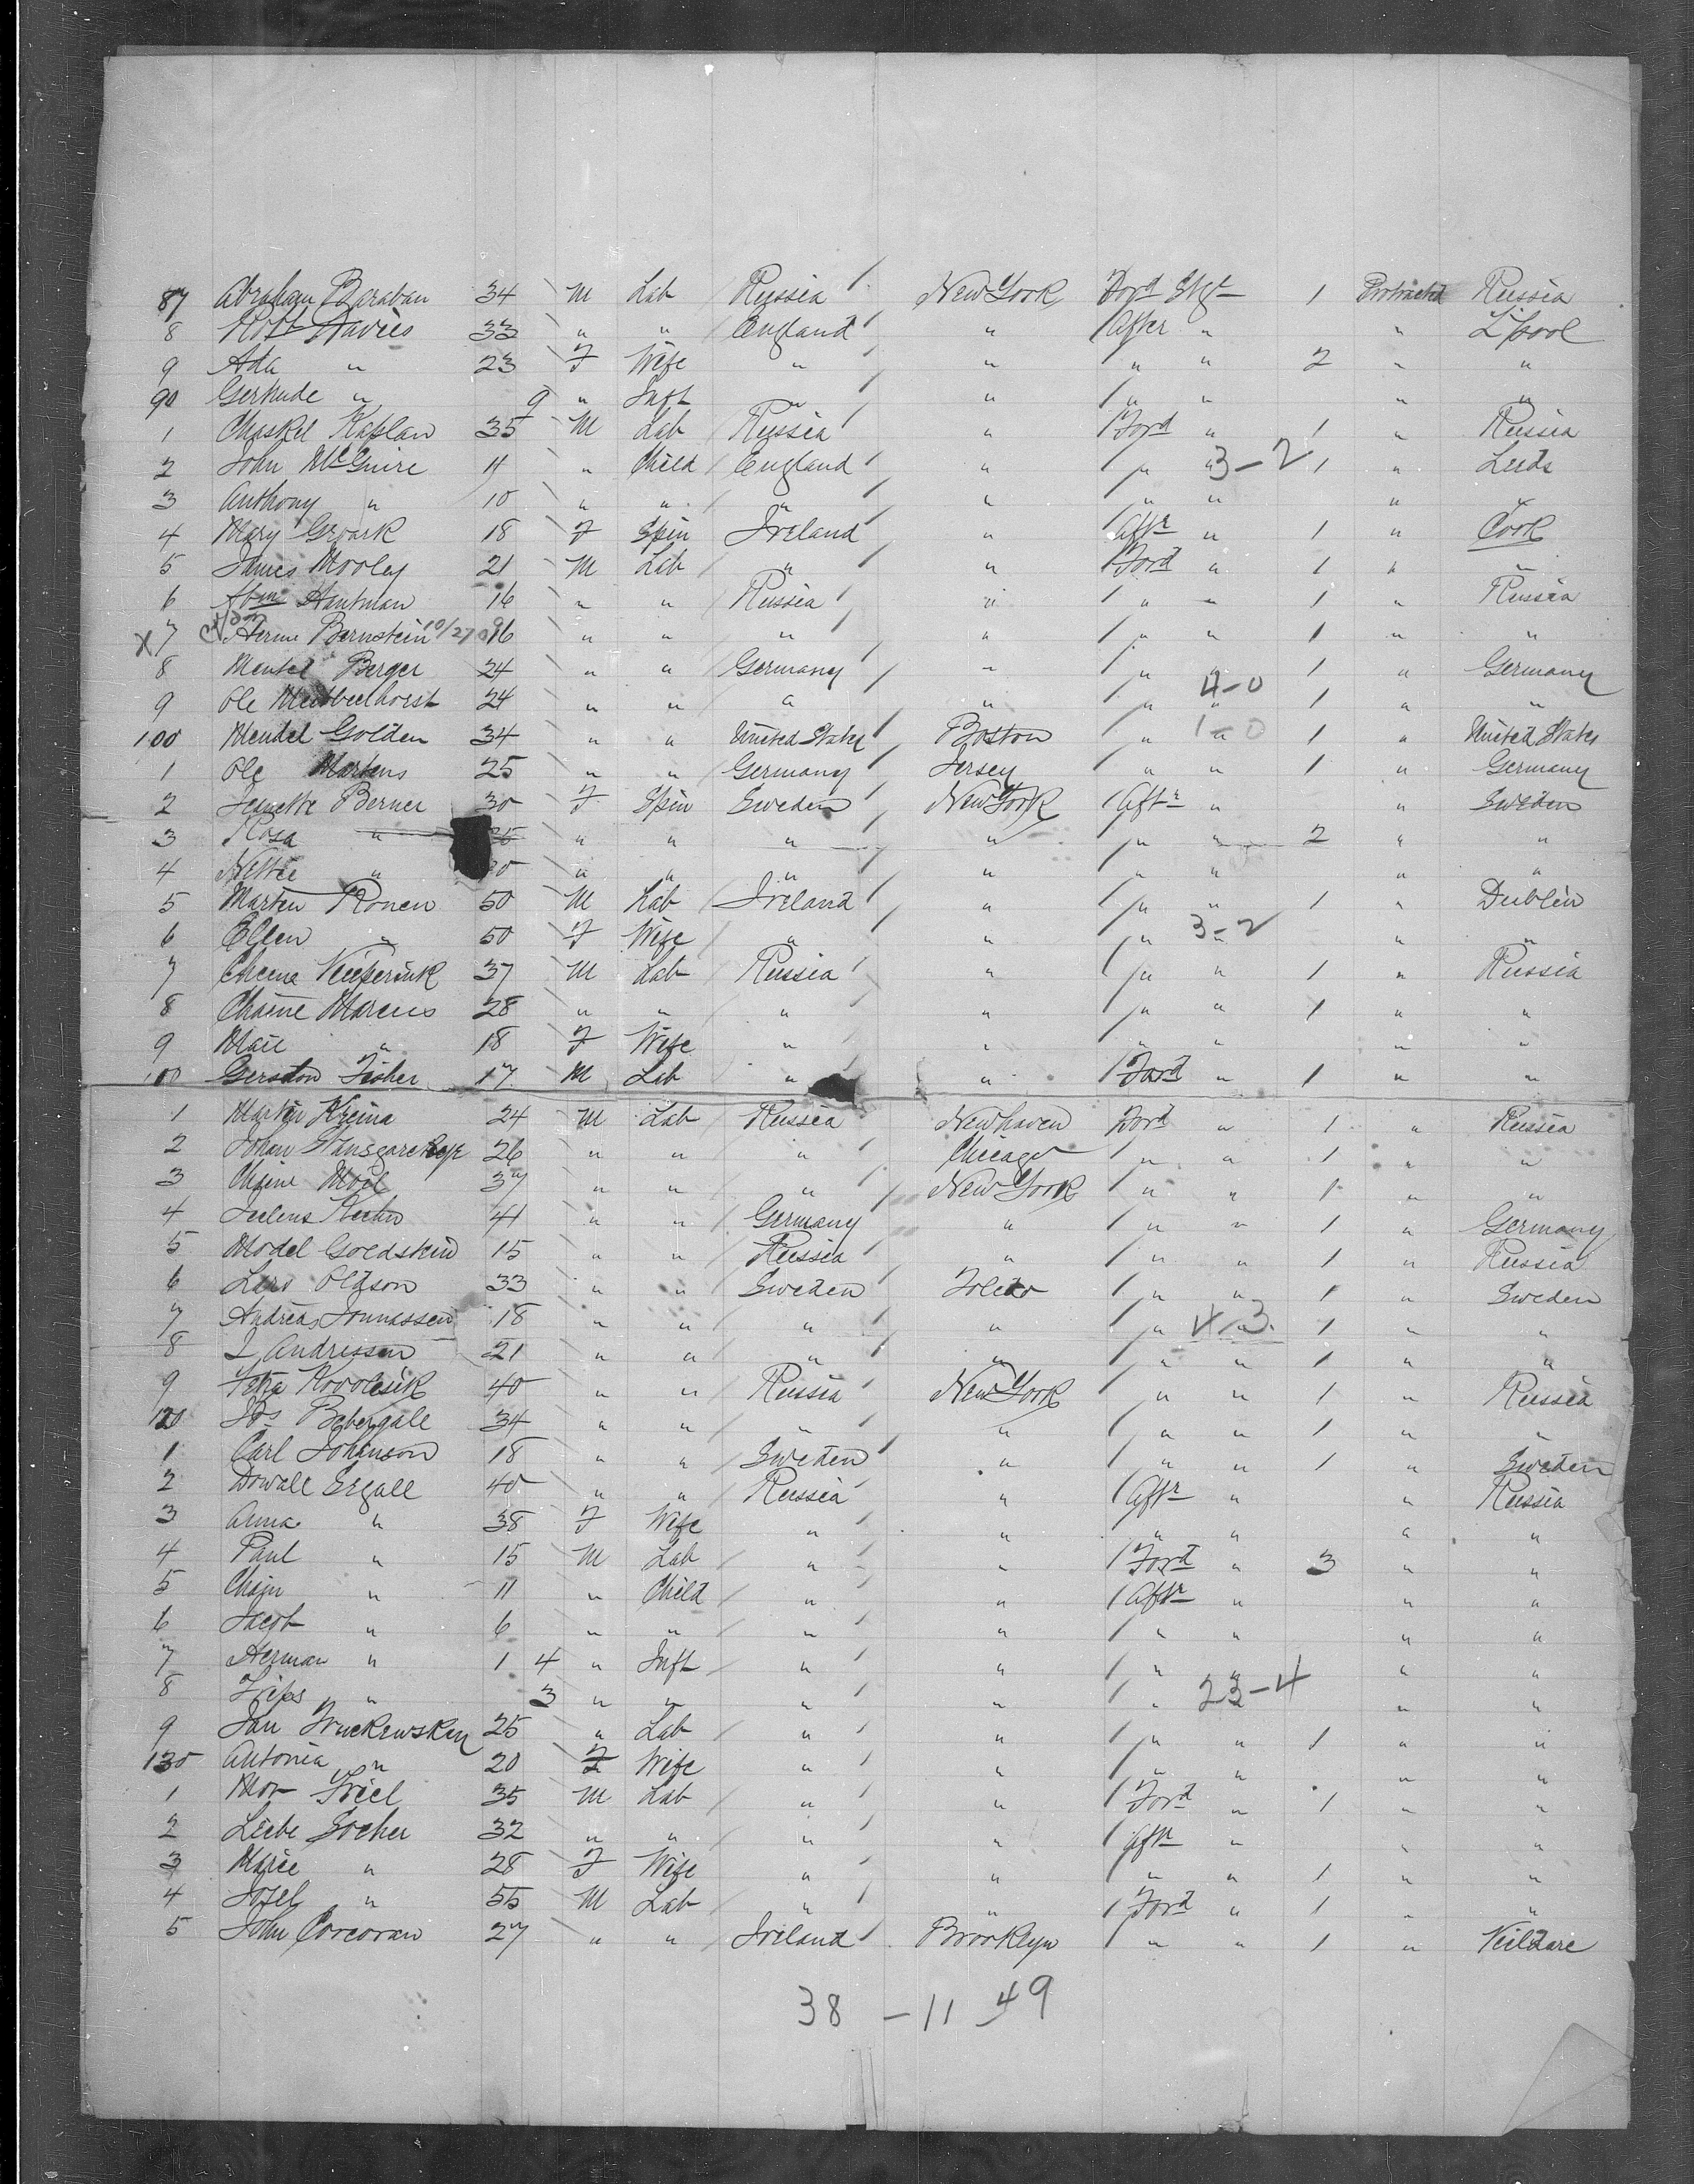 87 Abraham Baraban 34 M Lab Russia New York Ford Stge 1 Protracted Russia
8 Robt Davies 33 " " England " After " " L'pool
9 Ada " 23 F Wife " " " " 2 " "
90 Gertrude " 9 " Inft " " " " " "
1 Chaskel Kaplan 35 M Lab Russia " Ford " 1 " Russia
2 John McGuire 11 " Child England " " " 3-2 1 " Leeds
3 Anthony " 10 " " " " " " " "
4 Mary Groark 18 F Spin Ireland " Aftr " 1 " Cork
5 James Mooley 21 M Lab " " Ford " 1 " "
6 Abm Hantman 16 " " Russia " " " 1 " Russia
X 7 Herm Bernstein 10/27 16 " " " " " " 1 " "
8 Mentel Berger 24 " " Germany " " " 1 " Germany
9 Ole 24 " " " " " " 4-0 1 " "
100 Mendel Golden 34 " " United States Boston " " 1-0 1 " United States
1 Ole Martens 25 " " Germany Jersey " " 1 " Germany
2 Jenette Berner 30 F Spin Sweden New York Aftr " " Sweden
3 Rosa " " " " " " " 2 " "
4 Nettie " " " " " " " " "
5 Martin Ronen 50 M Lab Ireland " " " 1 " Dublin
6 Ellen " 50 F Wife " " " " 3-2 " "
7 37 M Lab Russia " " " 1 " Russia
8 Chaine Marcus 28 " " " " " " 1 " "
9 Marie " 18 F Wife " " " " " "
100 Gerston Fisher 17 M Lab " " Ford " 1 " "
1 Martin Kreina 24 M Lab Russia Newhaven Ford " 1 " Russia
2 Johan 26 " " " Chicago " " 1 " "
3 Chaine Moil 37 " " " New York " " 1 " "
4 41 " " Germany " " " 1 " Germany
5 Model Goldstein 15 " " Russia " " " 1 " Russia
6 Lars Oldson 33 " " Sweden Toledo " " 1 " Sweden
7 Andreas Jonnassen 18 " " " " " " 4-3 1 " "
8 I Andressen 21 " " " " " " 1 " "
9 40 " " Russia New York " " 1 " Russia
120 Jos Bebergale 34 " " " " " " 1 " "
1 Carl Johanson 18 " " Sweden " " " 1 " Sweden
2 Dowall Segall 40 " " Russia " Aftr " " Russia
3 Anna " 38 F Wife " " " " " "
4 Paul " 15 M Lab " " Ford " 3 " "
5 Chain " 11 " Child " " Aftr " " "
6 Jacob " 6 " " " " " " " "
7 Herman " 1 4 " Inft " " " " " "
8 " 3 " " " " " " 23-4 " "
9 Jan 25 " Lab " " " " 1 " "
130 Antonia " 20 F Wife " " " " " "
1 Mor Friel 35 M Lab " " Ford " 1 " "
2 Liebe Socher 32 " " " " Aftr " " "
3 Marie " 28 F Wife " " " " 1 " "
4 Josef " 55 M Lab " " Ford " 1 " "
5 John Corcoran 27 " " Ireland Brooklyn " " 1 " Keildare
38 - 11 49